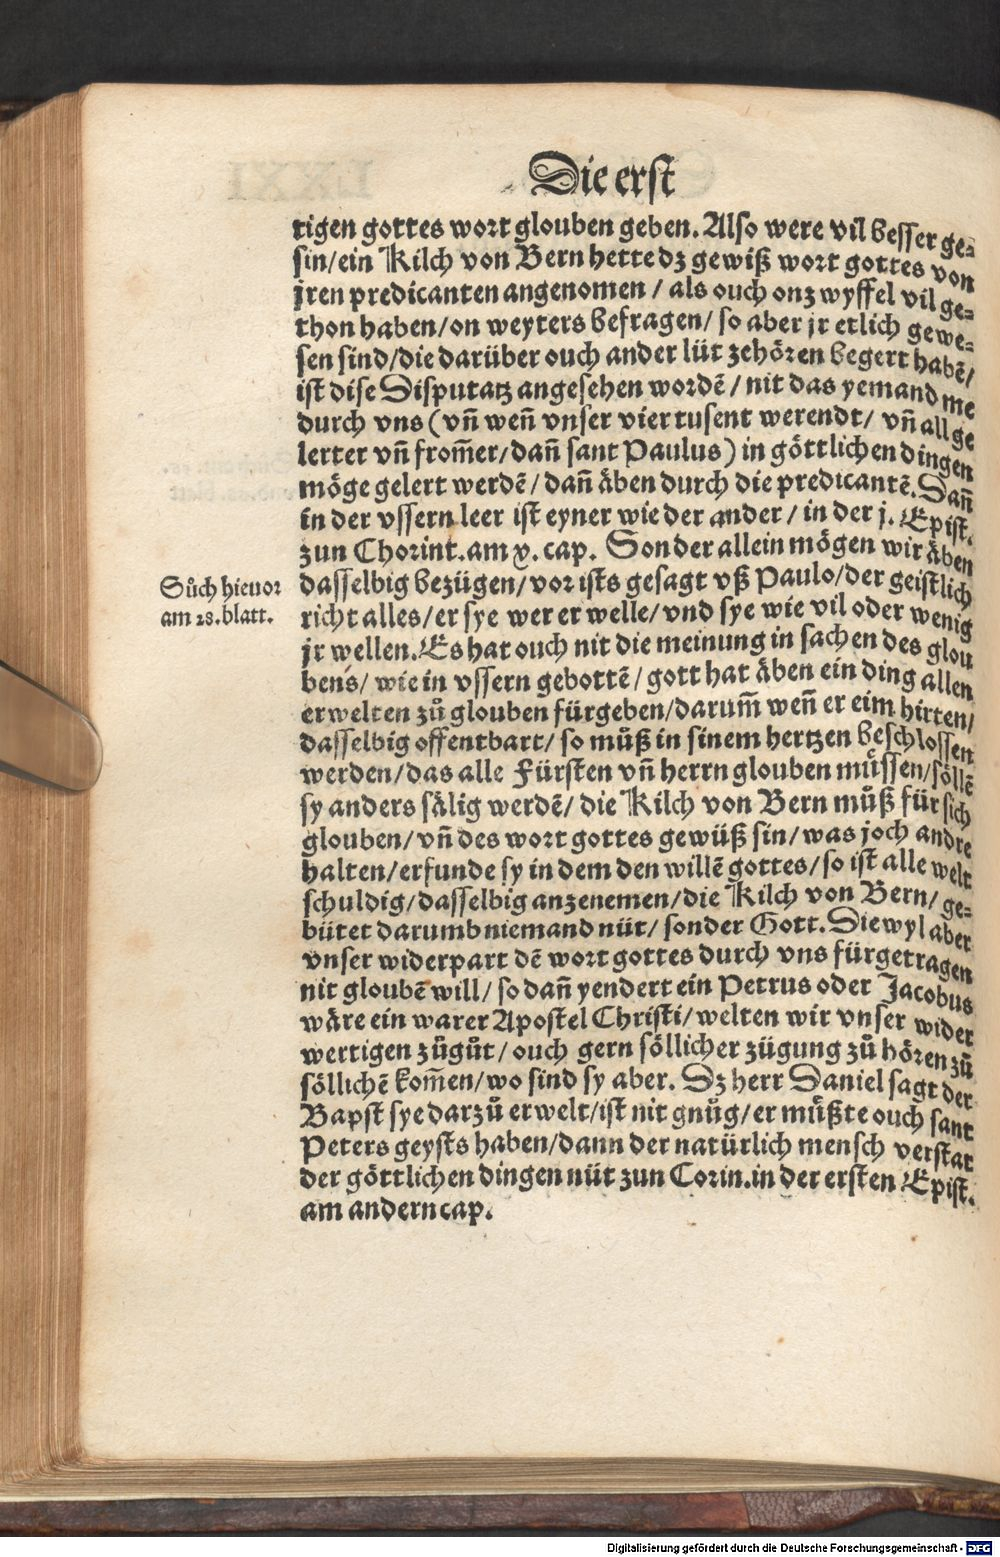 Die erst
tigen gottes wort glouben geben. Also were vil besser ge⸗
sin/ein Kilch von Bern hette dz gewiß wort gottes von
jren predicanten angenomen / als ouch onzwyffel vil ge⸗
thon haben/on weyters befragen/ so aber jr etlich gewe⸗
sen sind/die darüber ouch ander lüt zehören begert habē/
ist dise Disputatz angesehen wordē / nit das yemand me
durch vns (vñ weñ vnser vier tusent werendt/ vñ all ge
lerter vñ from̃er/dañ sant Paulus) in göttlichen dingen
möge gelert werdē / dañ äben durch die predicantē. Dañ
in der vssern leer ist eyner wie der ander / in der j. Epist.
zun Chorint. am x. cap. Sonder allein mögen wir äben
Sůch hieuor
am 28. blatt.
dasselbig bezügen/ vor ists gesagt vß Paulo/der geistlich
richt alles/er sye wer er welle/vnd sye wie vil oder wenig
jr wellen. Es hat ouch nit die meinung in sachen des glou
bens/ wie in vssern gebottē / gott hat äben ein ding allen
erwelten zů glouben fürgeben/darum̃ weñ er eim hirten/
dasselbig offentbart/ so můß in sinem hertzen beschlossen
werden/das alle Fürsten vñ herrn glouben müssen/söllē
sy anders sälig werdē/ die Kilch von Bern můß für sich
glouben/ vñ des wort gottes gewüß sin/ was joch andre
halten/erfunde sy in dem den willē gottes/so ist alle welt
schuldig/dasselbig anzenemen/die Kilch von Bern/ ge⸗
bütet darumb niemand nüt/ sonder Gott. Diewyl aber
vnser widerpart dē wort gottes durch vns fürgetragen
nit gloubē will/ so dañ yendert ein Petrus oder Jacobus
wäre ein warer Apostel Christi/welten wir vnser wider
wertigen zůgůt/ouch gern söllicher zügung zů hören zů
söllichē kom̃en/wo sind sy aber. Dz herr Daniel sagt der
Bapst sye darzů erwelt/ist nit gnůg/er müßte ouch sant
Peters geysts haben/dann der natürlich mensch verstat
der göttlichen dingen nüt zun Corin. in der ersten Epist.
am andern cap.
Digitalisierung gefördert durch die Deutsche Forschungsgemeinschaft - DFG